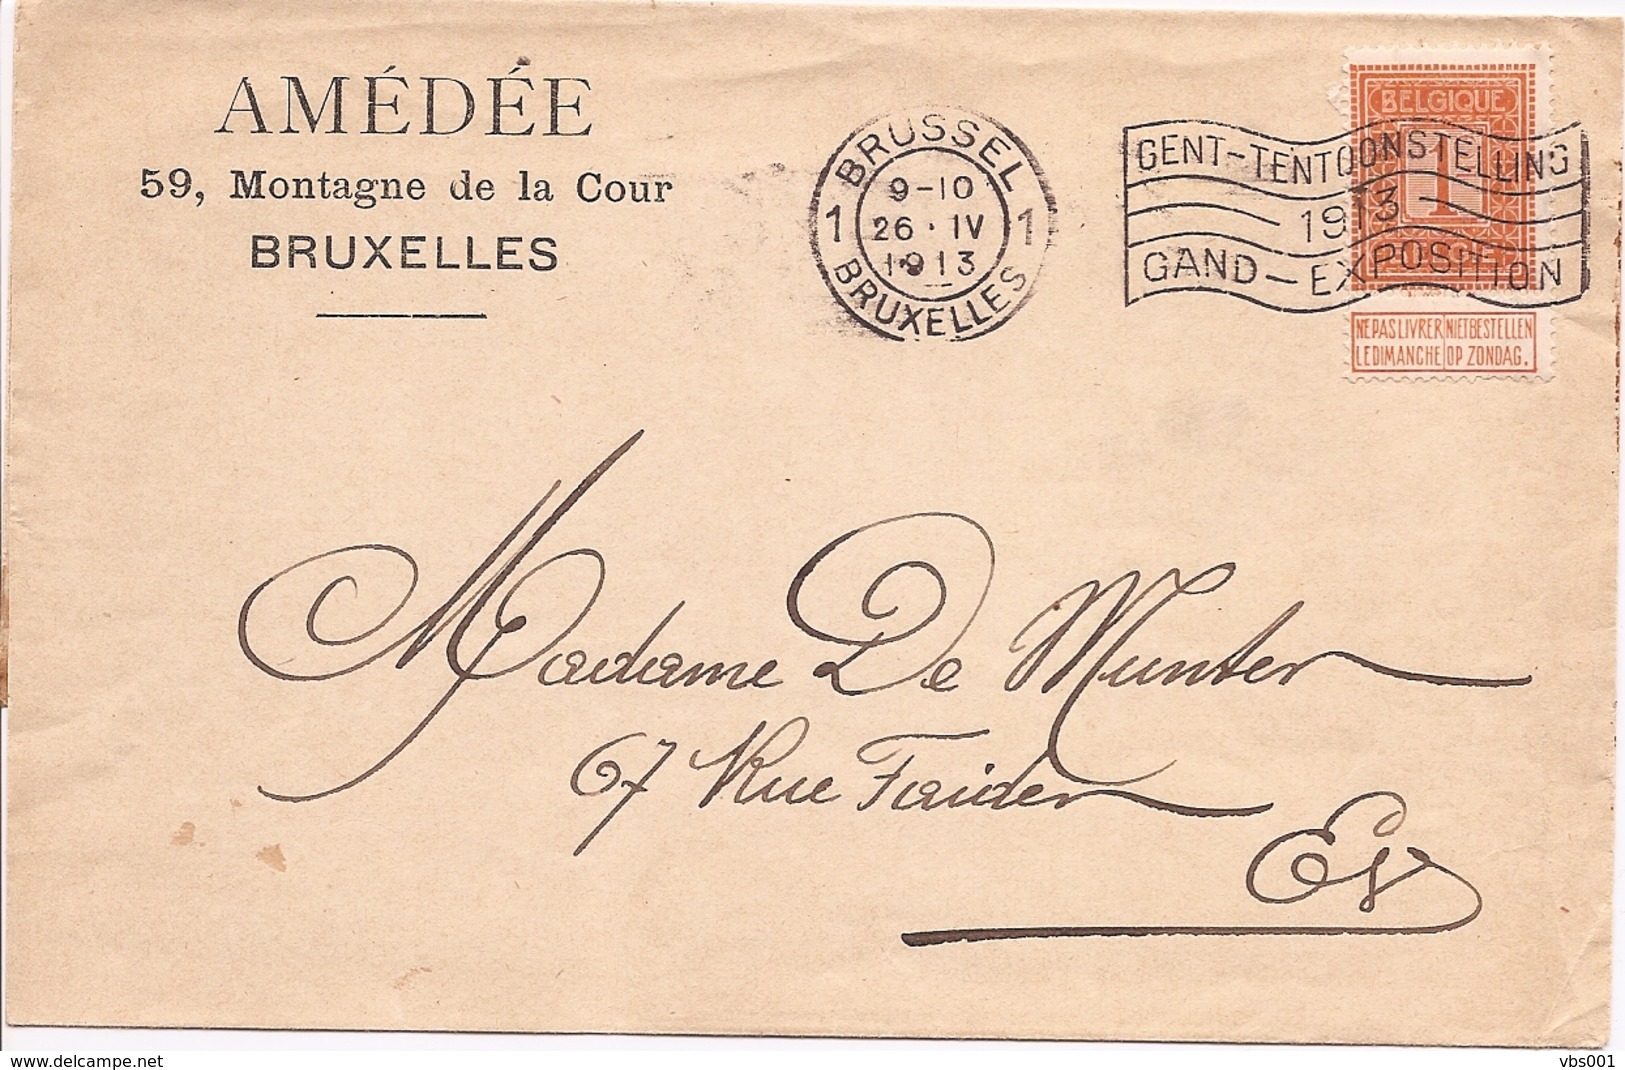 AMÉDÉE
59, Montagne de la Cour
BRUXELLES
BRUSSEL
9-10
1 26·IV 1
1913
BRUXELLES
GENT-TENTOONSTELLING
1913
GAND-EXPOSITION
BELGIQUE
1
BELGIË
NE PAS LIVRER NIET BESTELLEN
LE DIMANCHE OP ZONDAG.
Madame De Munter
67 Rue Faider
Ev
www.delcampe.net
vbs001